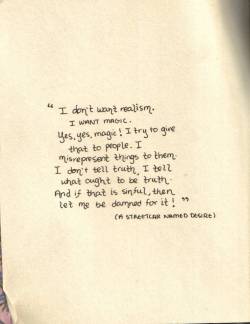 “ I don't want realism.
I WANT MAGIC.
Yes, yes, magic! I try to give
that to people. I
misrepresent things to them.
I don't tell truth, I tell
what ought to be truth.
And if that is sinful, then
let me be damned for it! ”
(A STREETCAR NAMED DESIRE)